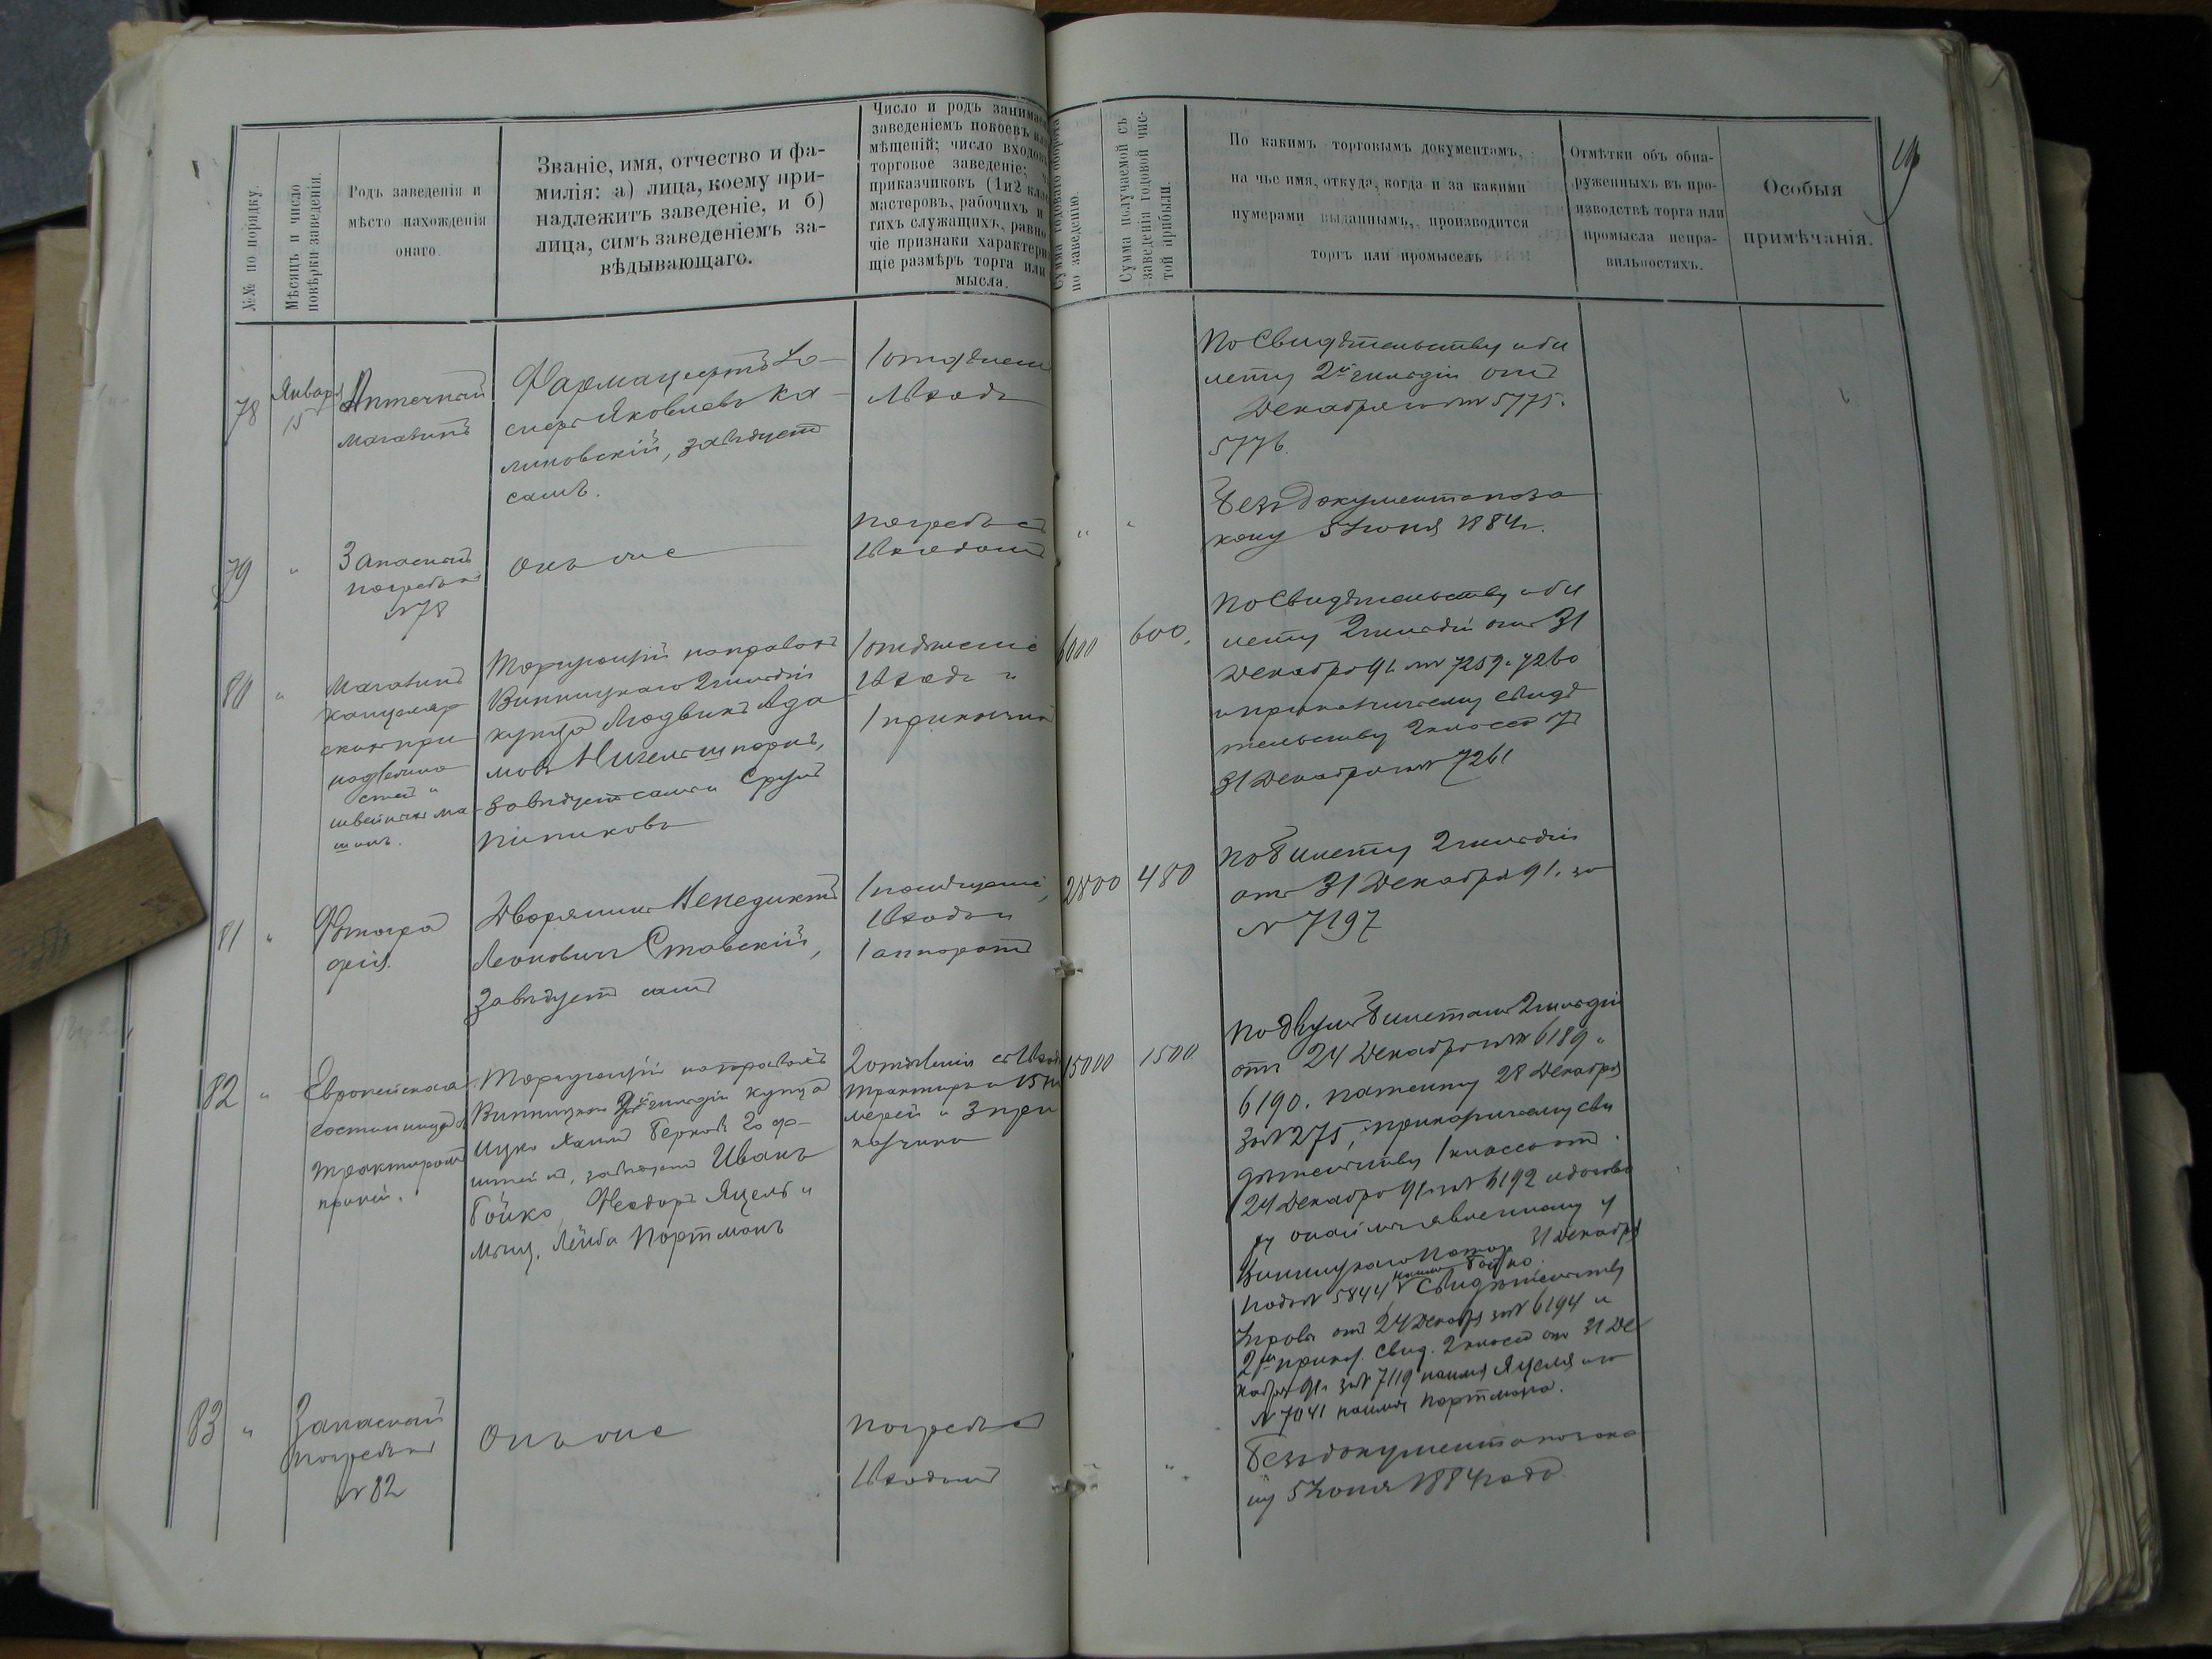 №№ по порядку.
Мѣсяцъ и число
повѣрки заведенія.
Родъ заведенія и
мѣсто нахожденія
онаго.
Званіе, имя, отчество и фа-
милія: а) лица, коему при-
надлежитъ заведеніе, и б)
лица, симъ заведеніемъ за-
вѣдывающаго.
Число и родъ занимае
заведеніемъ покоевъ
мѣщеній; число входовъ
торговое заведеніе;
приказчиковъ (1 и 2 клас
мастеровъ, рабочихъ и
гихъ служащихъ, равно
чіе признаки характери
щіе размѣръ торга или
мысла.
Сумма годоваго оборота
по заведенію.
Сумма получаемой съ
заведенія годовой чис-
той прибыли.
По какимъ торговымъ документамъ,
на чье имя, откуда, когда и за какими
нумерами выданнымъ, производится
торгъ или промыселъ
Отмѣтки объ обна-
руженныхъ въ про-
изводствѣ торга или
промысла непра-
вильностяхъ.
Особыя
примѣчанія.
78
Января
15
Аптечный
магазинъ
Фармацевтъ Іо-
сифъ Яковлевъ Ка-
линовскій, завѣдуетъ
самъ.
1 отдѣленіе
1 входъ
По Свидѣтельству и би
лету 2й гильдіи отъ
Декабря за №№ 5775 и
5776.
79
"
Запасный
погребъ къ
№ 78
Онъ же
Погребъ съ
1 входомъ
"
"
Безъ документа по за
кону 5 Іюня 1884 г.
80
"
Магазинъ
канцеляр
скихъ при
надлежно
стей и
швейныхъ ма-
шинъ.
Торгующій на правахъ
Винницкаго 2 гильдіи
купца Людвикъ Ада
мовъ
завѣдуетъ самъ и Сруль
Пипиковъ
1 отдѣленіе
1 входъ и
1 прикащикъ
6000
600.
По Свидѣтельству и би
лету 2 гильдіи отъ 31
Декабря 91 г. №№ 7259 и 7260
и приказчичьему свидѣ
тельству 2 класса отъ
31 Декабря за № 7261
81
"
Фотогра
фія.
Дворянинъ Бенедиктъ
Леоновичъ Ставскій,
завѣдуетъ самъ
1 помѣщеніе,
1 входъ и
1 аппаратъ
2800
480
По билету 2 гильдіи
отъ 31 Декабря 91 г. за
№ 7197
82
"
Европейская
гостинница съ
трактирной
Торгующій на правахъ
Винницкаго 2й гильдіи купца
Ицко Хаимъ Берковъ
завѣдуютъ Иванъ
Бойко, Феодоръ Яцель и
мѣщ. Лейба Портманъ
2 отдѣленія съ 1 входомъ
трактиръ и 15 но
мерей и 3 при
казчика
15000
1500.
По двумъ билетамъ 2 гильдіи
отъ 24 Декабря за №№ 6189 и
6190. патенту 28 Декабря
за № 275, приказчичьему сви
дѣтельству 1 класса отъ
24 Декабря 91 г. за № 6192 и догово
ру о найму явленному у
Винницкаго Нотар. 31 Декабря
подъ № 5844 на имя Бойко. Свидѣтельству
отъ 24 Декабря за № 6194 и
2мъ приказ. свид. 2 класса отъ 31 Де
кабря 91 г. за № 7119 на имя Яцеля и за
№ 7041 на имя Портмана.
83
"
Запасный
погребъ къ
№ 82
Онъ же
Погребъ съ
1 входомъ
"
Безъ документа по зако
ну 5 Іюня 1884 года